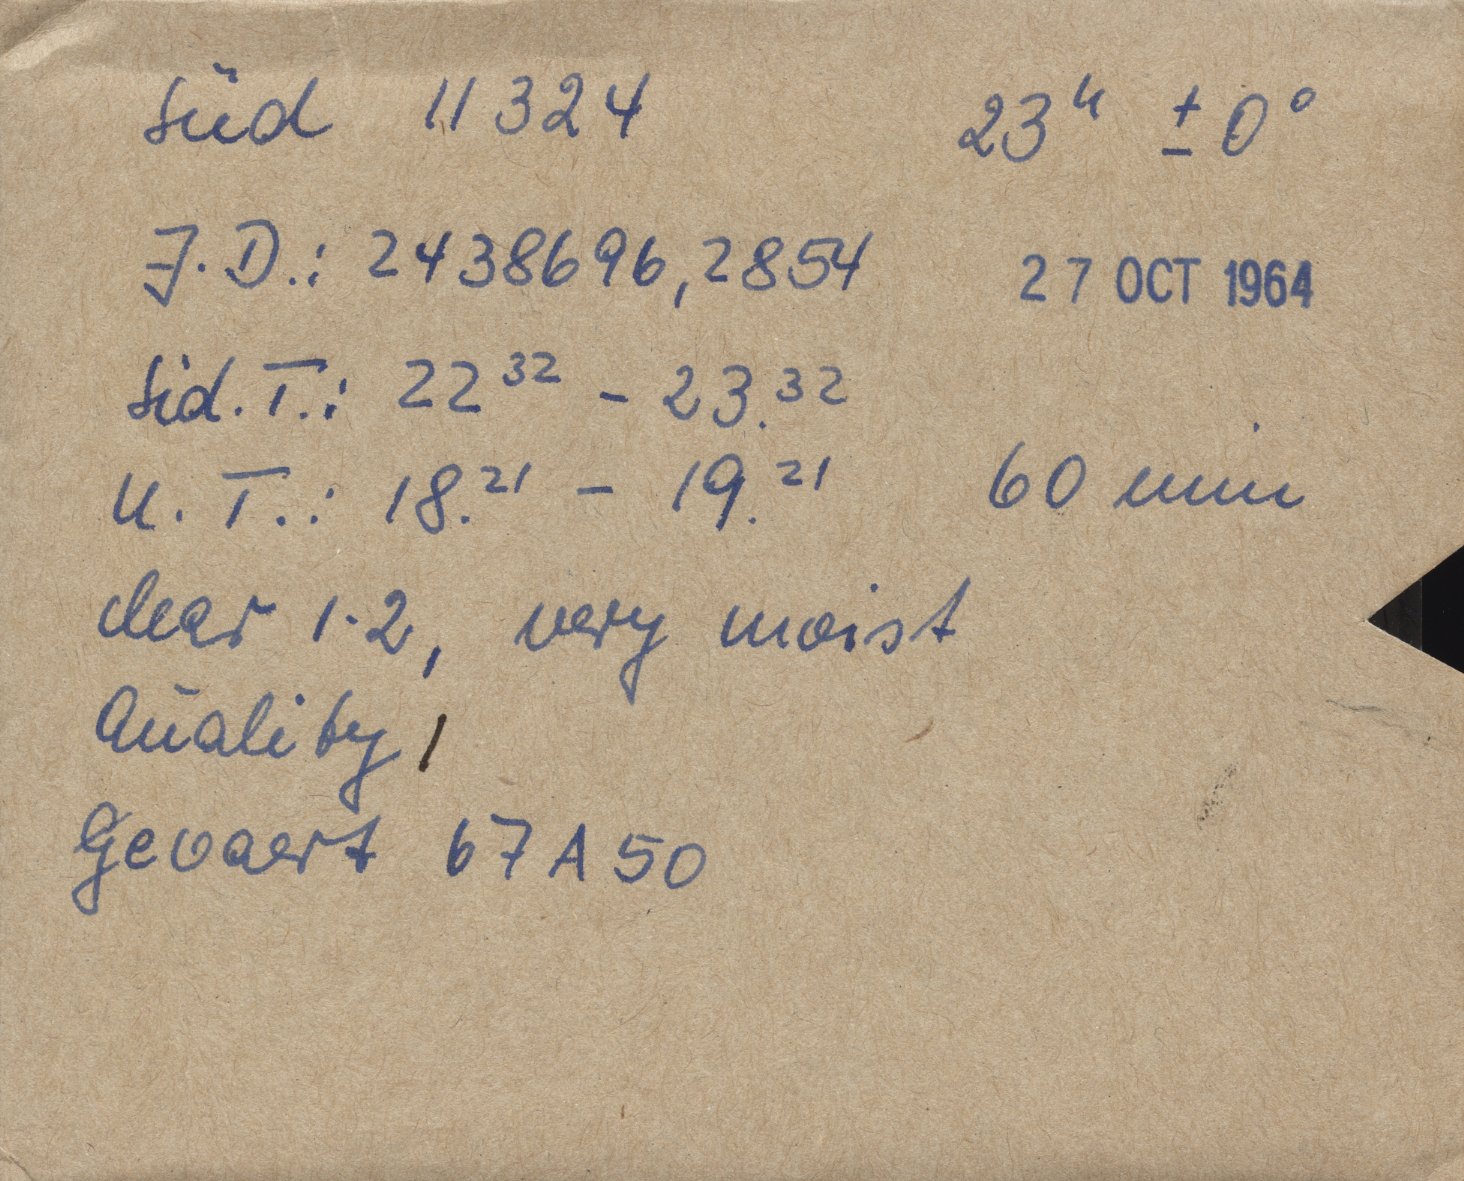 Süd 11324 23ʰ ± 0°
J.D.: 2438696,2854 27 OCT 1964
Sid.T.: 22³² - 23.³²
U.T.: 18.²¹ - 19.²¹ 60 min
clear 1-2, very moist
Quality 1
Gevaert 67A50